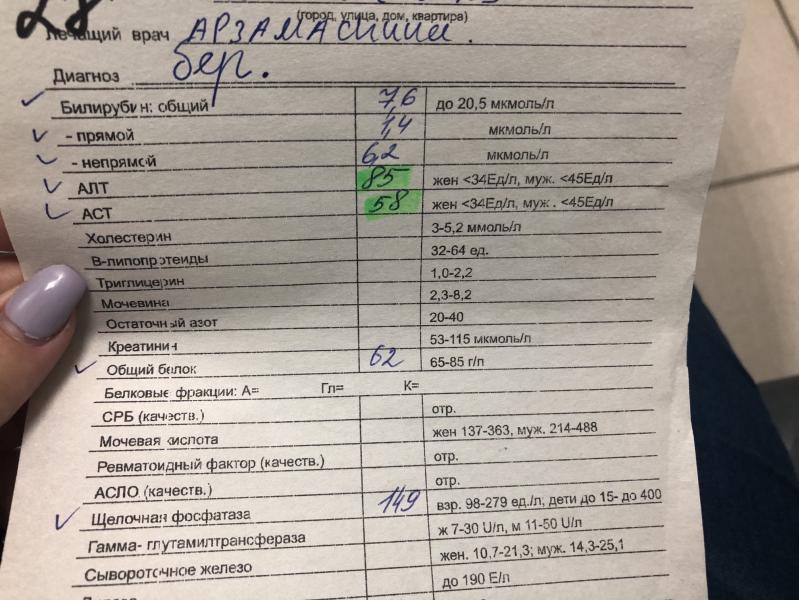 (город, улица, дом, квартира)
Лечащий врач
Диагноз бер.
Билирубин: общий 7,6 до 20,5 мкмоль/л
- прямой 1,4 мкмоль/л
- непрямой 6,2 мкмоль/л
АЛТ 85 жен <34Ед/л, муж. <45Ед/л
АСТ 58 жен <34Ед/л, муж. <45Ед/л
Холестерин 3-5,2 ммоль/л
В-липопротеиды 32-64 ед.
Триглицерин 1,0-2,2
Мочевина 2,3-8,2
Остаточный азот 20-40
Креатинин 53-115 мкмоль/л
Общий белок 62 65-85 г/л
Белковые фракции: А= Гл= К=
СРБ (качеств.) отр.
Мочевая кислота жен 137-363, муж. 214-488
Ревматоидный фактор (качеств.) отр.
АСЛО (качеств.) отр.
Щелочная фосфатаза 149 взр. 98-279 ед./л, дети до 15- до 400
Гамма- глутамилтрансфераза ж 7-30 U/л, м 11-50 U/л
Сывороточное железо жен. 10,7-21,3; муж. 14,3-25,1
до 190 Е/л